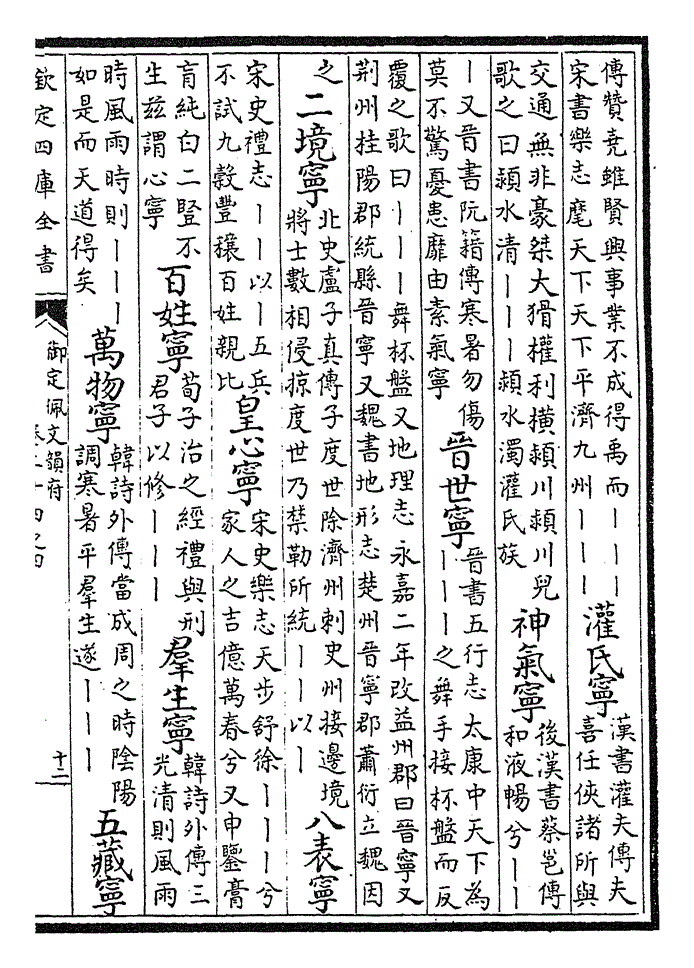 傳贊堯雖賢興事業不成得禹而丨丨丨
宋書樂志麾天下天下平濟九州丨丨丨
灌氏寧
漢書灌夫傳夫
喜任俠諸所與
交通無非豪桀大猾權利橫潁川潁川兒
歌之曰潁水清丨丨丨潁水濁灌氏族
神氣寧
後漢書蔡邕傳
和液暢兮丨丨
丨又晉書阮籍傳寒暑勿傷
莫不驚憂患靡由素氣寧
晉世寧
晉書五行志太康中天下為
丨丨丨之舞手接杯盤而反
覆之歌曰丨丨丨舞杯盤又地理志永嘉二年改益州郡曰晉寧又
荆州桂陽郡統縣晉寧又魏書地形志楚州晉寧郡蕭衍立魏因
之
二境寧
北史盧子真傳子度世除濟州刺史州接邊境
將士數相侵掠度世乃禁勒所統丨丨以丨
八表寧
宋史禮志丨丨以丨五兵
不試九穀豐穰百姓親比
皇心寧
宋史樂志天步舒徐丨丨丨兮
家人之吉億萬春兮又申鑒膏
肓純白二豎不
生兹謂心寧
百姓寧
荀子治之經禮與刑
君子以修丨丨丨
羣生寧
韓詩外傳三
光清則風雨
時風雨時則丨丨丨
如是而天道得矣
萬物寧
韓詩外傳當成周之時陰陽
調寒暑平羣生遂丨丨丨
五藏寧
欽定四庫全書
御定佩文韻府
卷二十四之四
十二